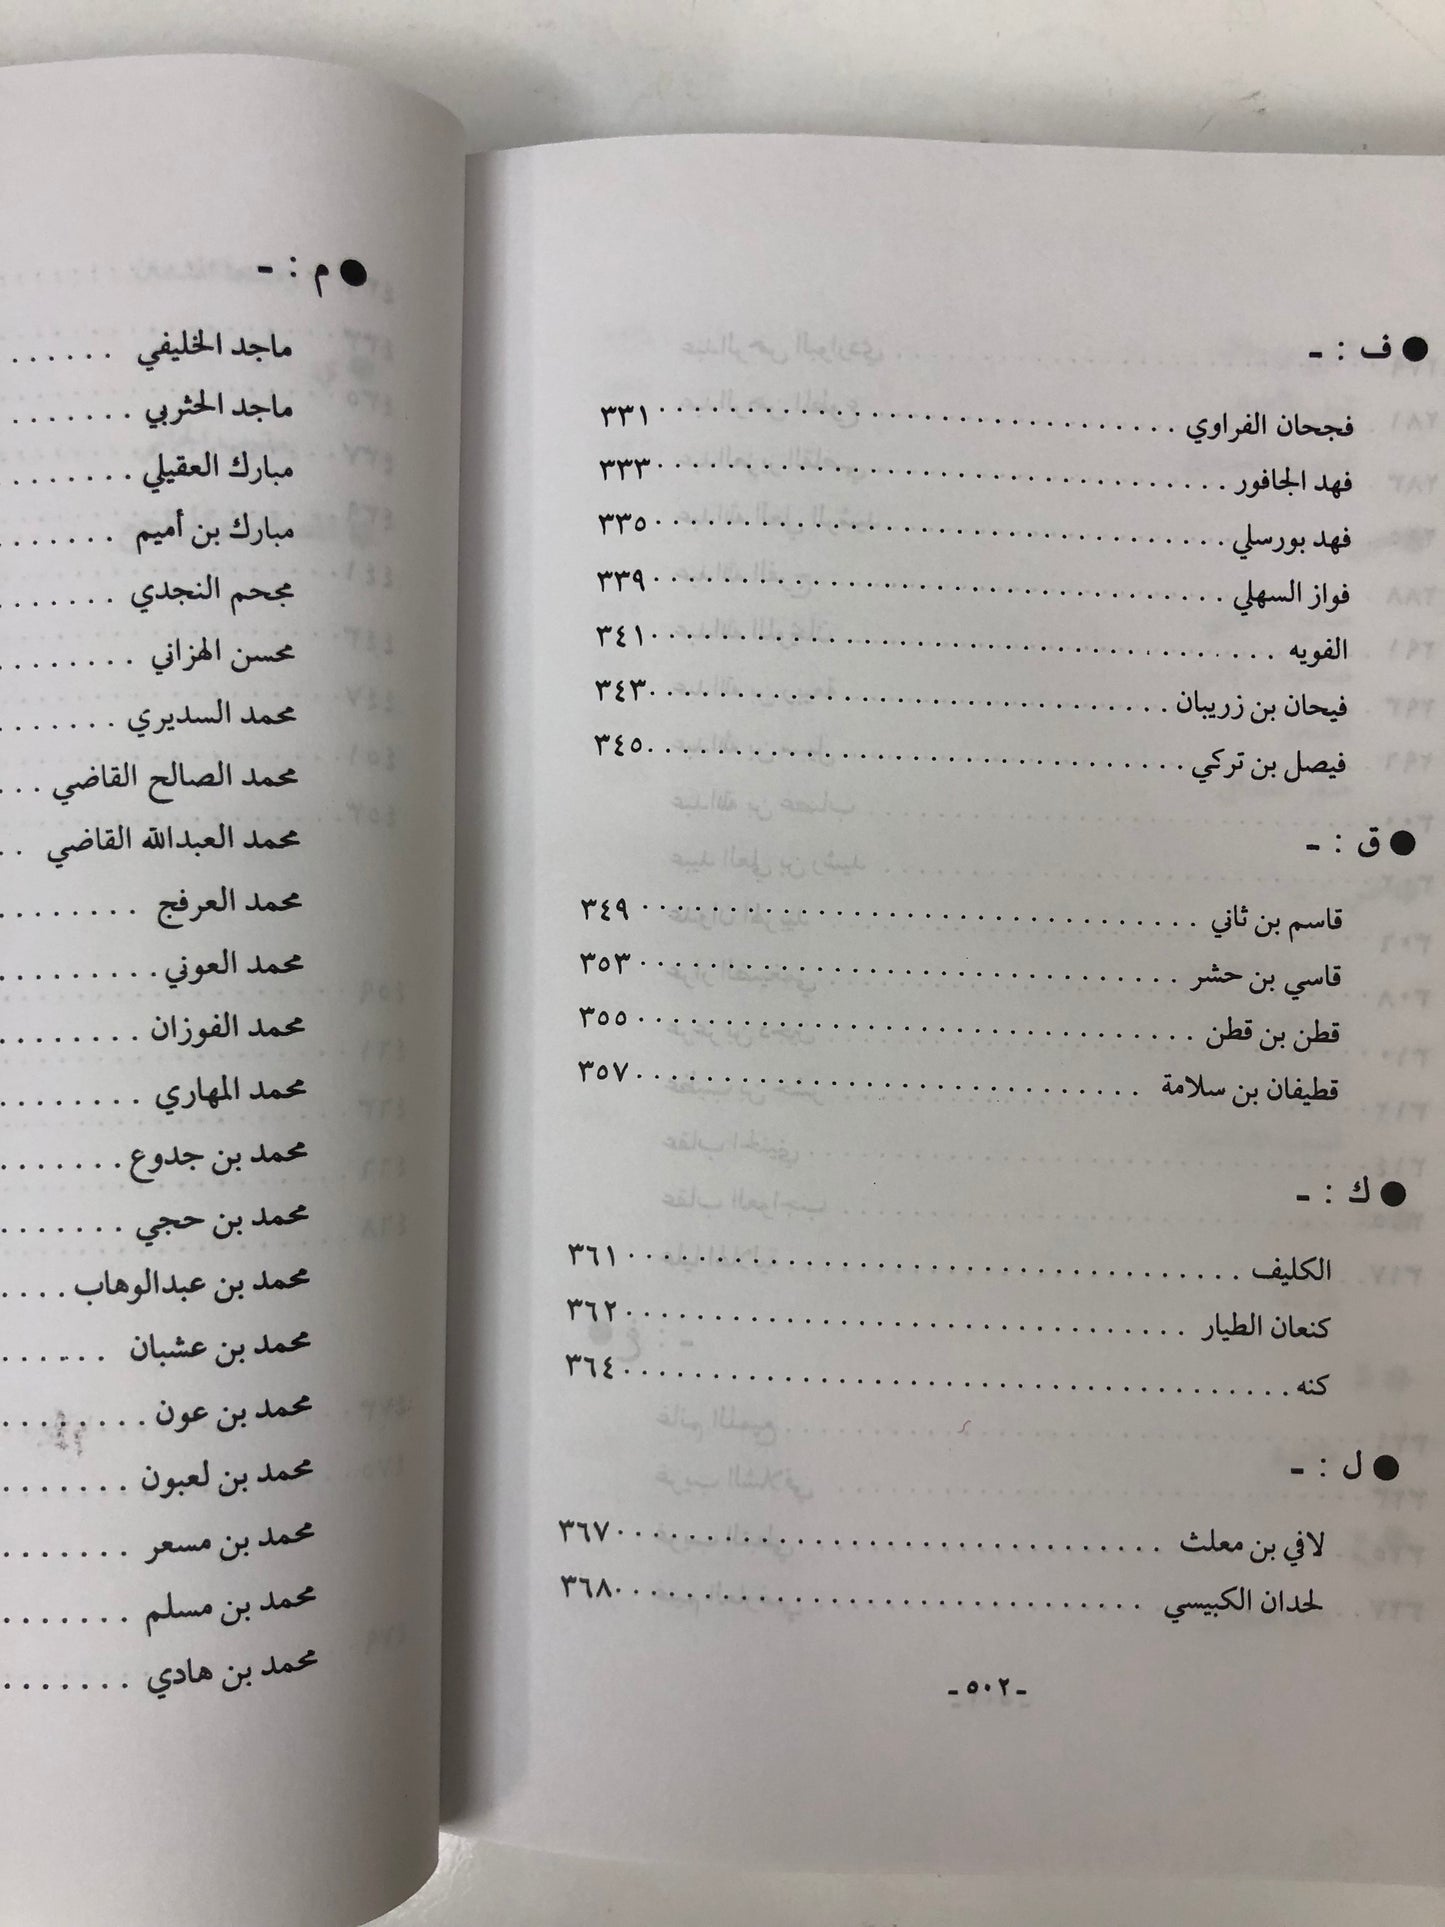 ● ف : -
فجحان الفراوي ................................ ٣٣١
فهد الجافور ................................ ٣٣٣
فهد بورسلي ................................ ٣٣٥
فواز السهلي ................................ ٣٣٩
الفويه ................................ ٣٤١
فيحان بن زريبان ................................ ٣٤٣
فيصل بن تركي ................................ ٣٤٥
● ق : -
قاسم بن ثاني ................................ ٣٤٩
قاسي بن حشر ................................ ٣٥٣
قطن بن قطن ................................ ٣٥٥
قطيفان بن سلامة ................................ ٣٥٧
● ك : -
الكليف ................................ ٣٦١
كنعان الطيار ................................ ٣٦٢
كنه ................................ ٣٦٤
● ل : -
لافي بن معلث ................................ ٣٦٧
لحدان الكبيسي ................................ ٣٦٨
- ٥٠٢ -
● م : -
ماجد الخليفي ......
ماجد الحثربي ......
مبارك العقيلي ......
مبارك بن أميم ......
مجحم النجدي ......
محسن الهزاني ......
محمد السديري ......
محمد الصالح القاضي ...
محمد العبدالله القاضي ..
محمد العرفج ........
محمد العوني ........
محمد الفوزان .......
محمد المهاري .......
محمد بن جدوع .......
محمد بن حجي .......
محمد بن عبدالوهاب ....
محمد بن عشبان ......
محمد بن عون ........
محمد بن لعبون .......
محمد بن مسعر .......
محمد بن مسلم .......
محمد بن هادي .......